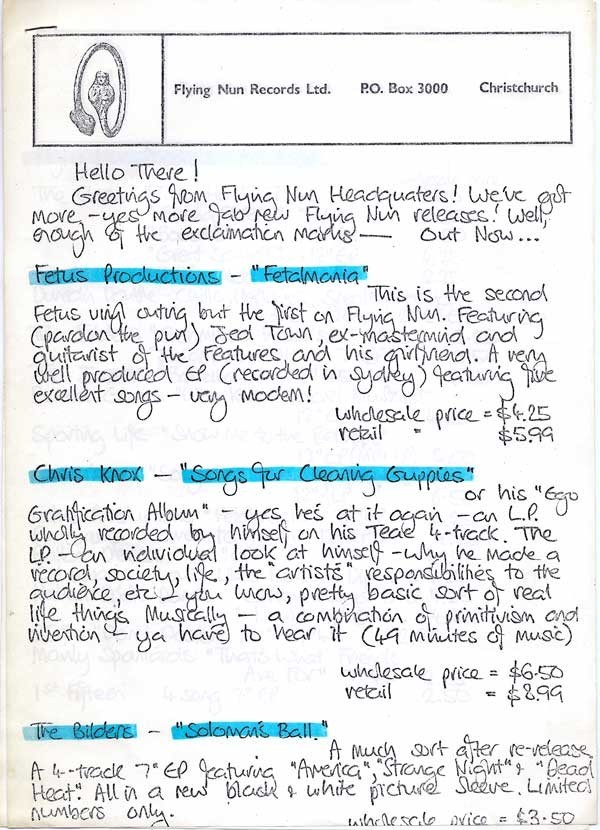 Flying Nun Records Ltd. P.O. Box 3000 Christchurch
Hello There!
Greetings from Flying Nun Headquaters! We've got
more - yes more fab new Flying Nun releases! Well,
enough of the exclamation marks — Out Now...
Fetus Productions - "Fetalmania"
This is the second
Fetus vinyl outing but the first on Flying Nun. Featuring
(pardon the pun) Jed Town, ex-mastermind and
guitarist of the Features, and his girlfriend. A very
well produced EP (recorded in Sydney) featuring five
excellent songs - very modern!
wholesale price = $4.25
retail " = $5.99
Chris Knox - "Songs for Cleaning Guppies"
or his "Ego
Gratification Album" - yes, he's at it again - an L.P.
wholly recorded by himself on his Teac 4-track. The
L.P. - an individual look at himself - why he made a
record, society, life, the "artists" responsibilities to the
audience, etc - you know, pretty basic sort of real
life things. Musically - a combination of primitivism and
invention - ya have to hear it (49 minutes of music)
wholesale price = $6.50
retail " = $8.99
The Bilders - "Soloman's Ball."
A much sort after re-release
A 4-track 7" EP featuring "America", "Strange Night" & "Dead
Heat". All in a new black & white picture sleeve. Limited
numbers only.
wholesale price = $3.50